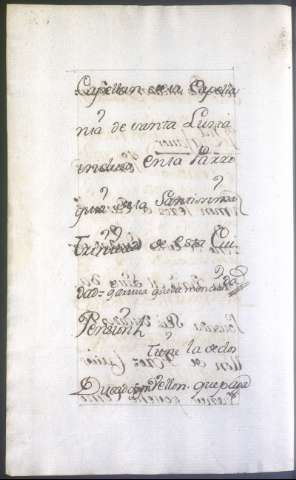 Capellan de la Capella
nia de santa Luzia
inclusa en la Parro
quia de la Santissima
Trinidad de esta Ciu
dad
Pension
tiene la de dos
Ducados vellon que paga